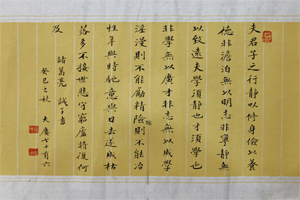 夫君子之行靜以修身儉以養
德非澹泊無以明志非寧靜無
以致遠夫學須靜也才須學也
非學無以廣才非志無以成學
淫漫則不能勵精險躁則不能治
性年與時馳意與日去遂成枯
落多不接世悲守窮廬將復何
及
諸葛亮 誡子書
癸巳之秋 七十有六